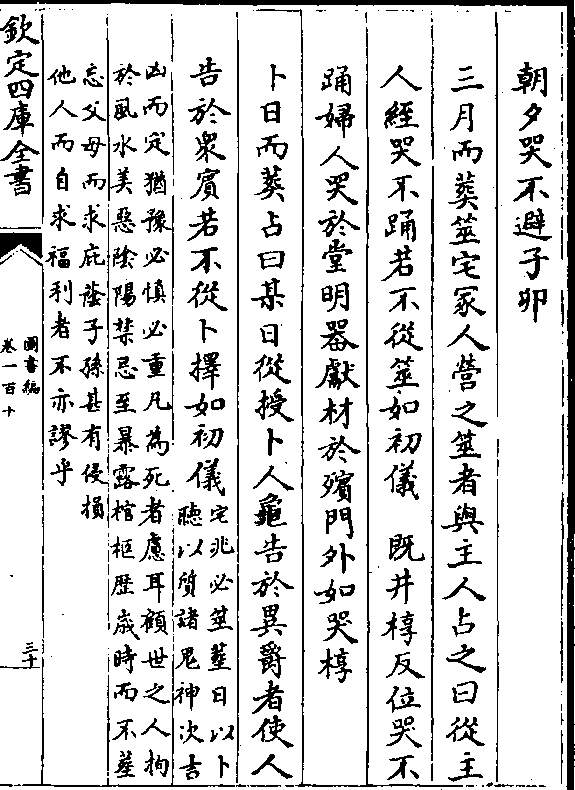 朝夕哭不避子卯
三月而葬筮宅冢人營之筮者與主人占之曰從主
人絰哭不踊若不從筮如初儀　既井椁反位哭不
踊婦人哭於堂明器獻材於殯門外如哭椁
卜日而葬占曰某日從授卜人龜告於異爵者使人
告於衆賓若不從卜擇如初儀
宅兆必筮葬日以卜
聽以質諸鬼神次吉
凶而定猶豫必慎必重凡為死者慮耳顧世之人拘
於風水美惡陰陽禁忌至暴露棺柩歴歲時而不葬
忘父母而求庇蔭子孫甚有侵損
他人而自求福利者不亦謬乎
欽定四庫全書
圖書編
卷一百十
三十